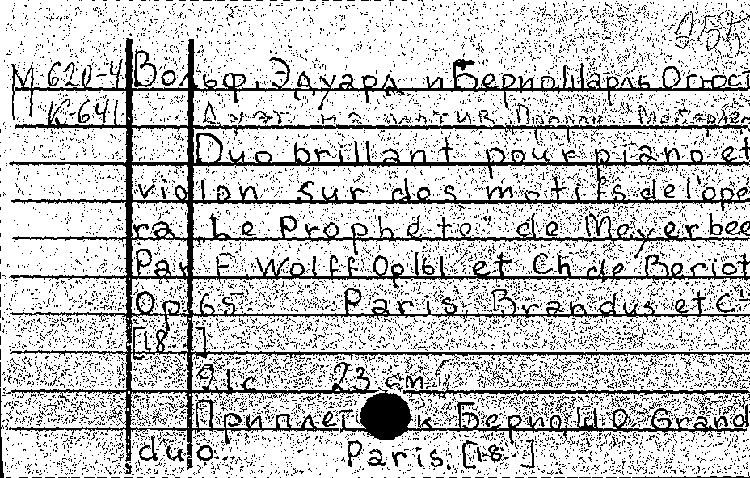 255
М 620-4 Вольф, Эдуард и Берио Шарль Огюст
К-641 Дуэт на мотив
Duo brillant pour piano et
violon sur des motifs de l'opé
ra "Le Prophète" de Meyerbee
Par E. Wolff Op 161 et Ch de Beriot
Op. 65. Paris, Brandus et Cie
[18..]
91 с 23 cm
Приплет к Берио Ш. Grand
duo. Paris. [18..]